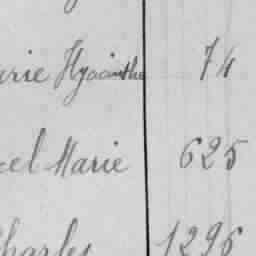 arie Hyacinthe 74
cel Marie 625
Charles 1296